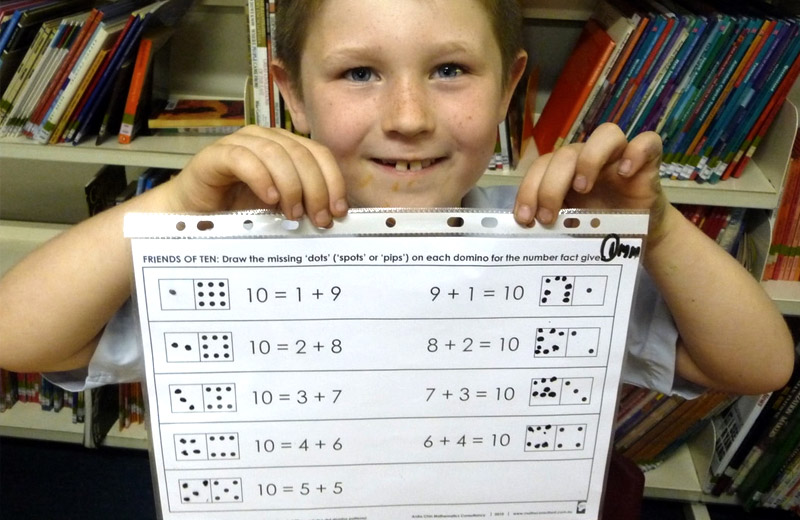 FRIENDS OF TEN: Draw the missing 'dots' ('spots' or 'pips') on each domino for the number fact give
1MM
10 = 1 + 9 9 + 1 = 10
10 = 2 + 8 8 + 2 = 10
10 = 3 + 7 7 + 3 = 10
10 = 4 + 6 6 + 4 = 10
10 = 5 + 5